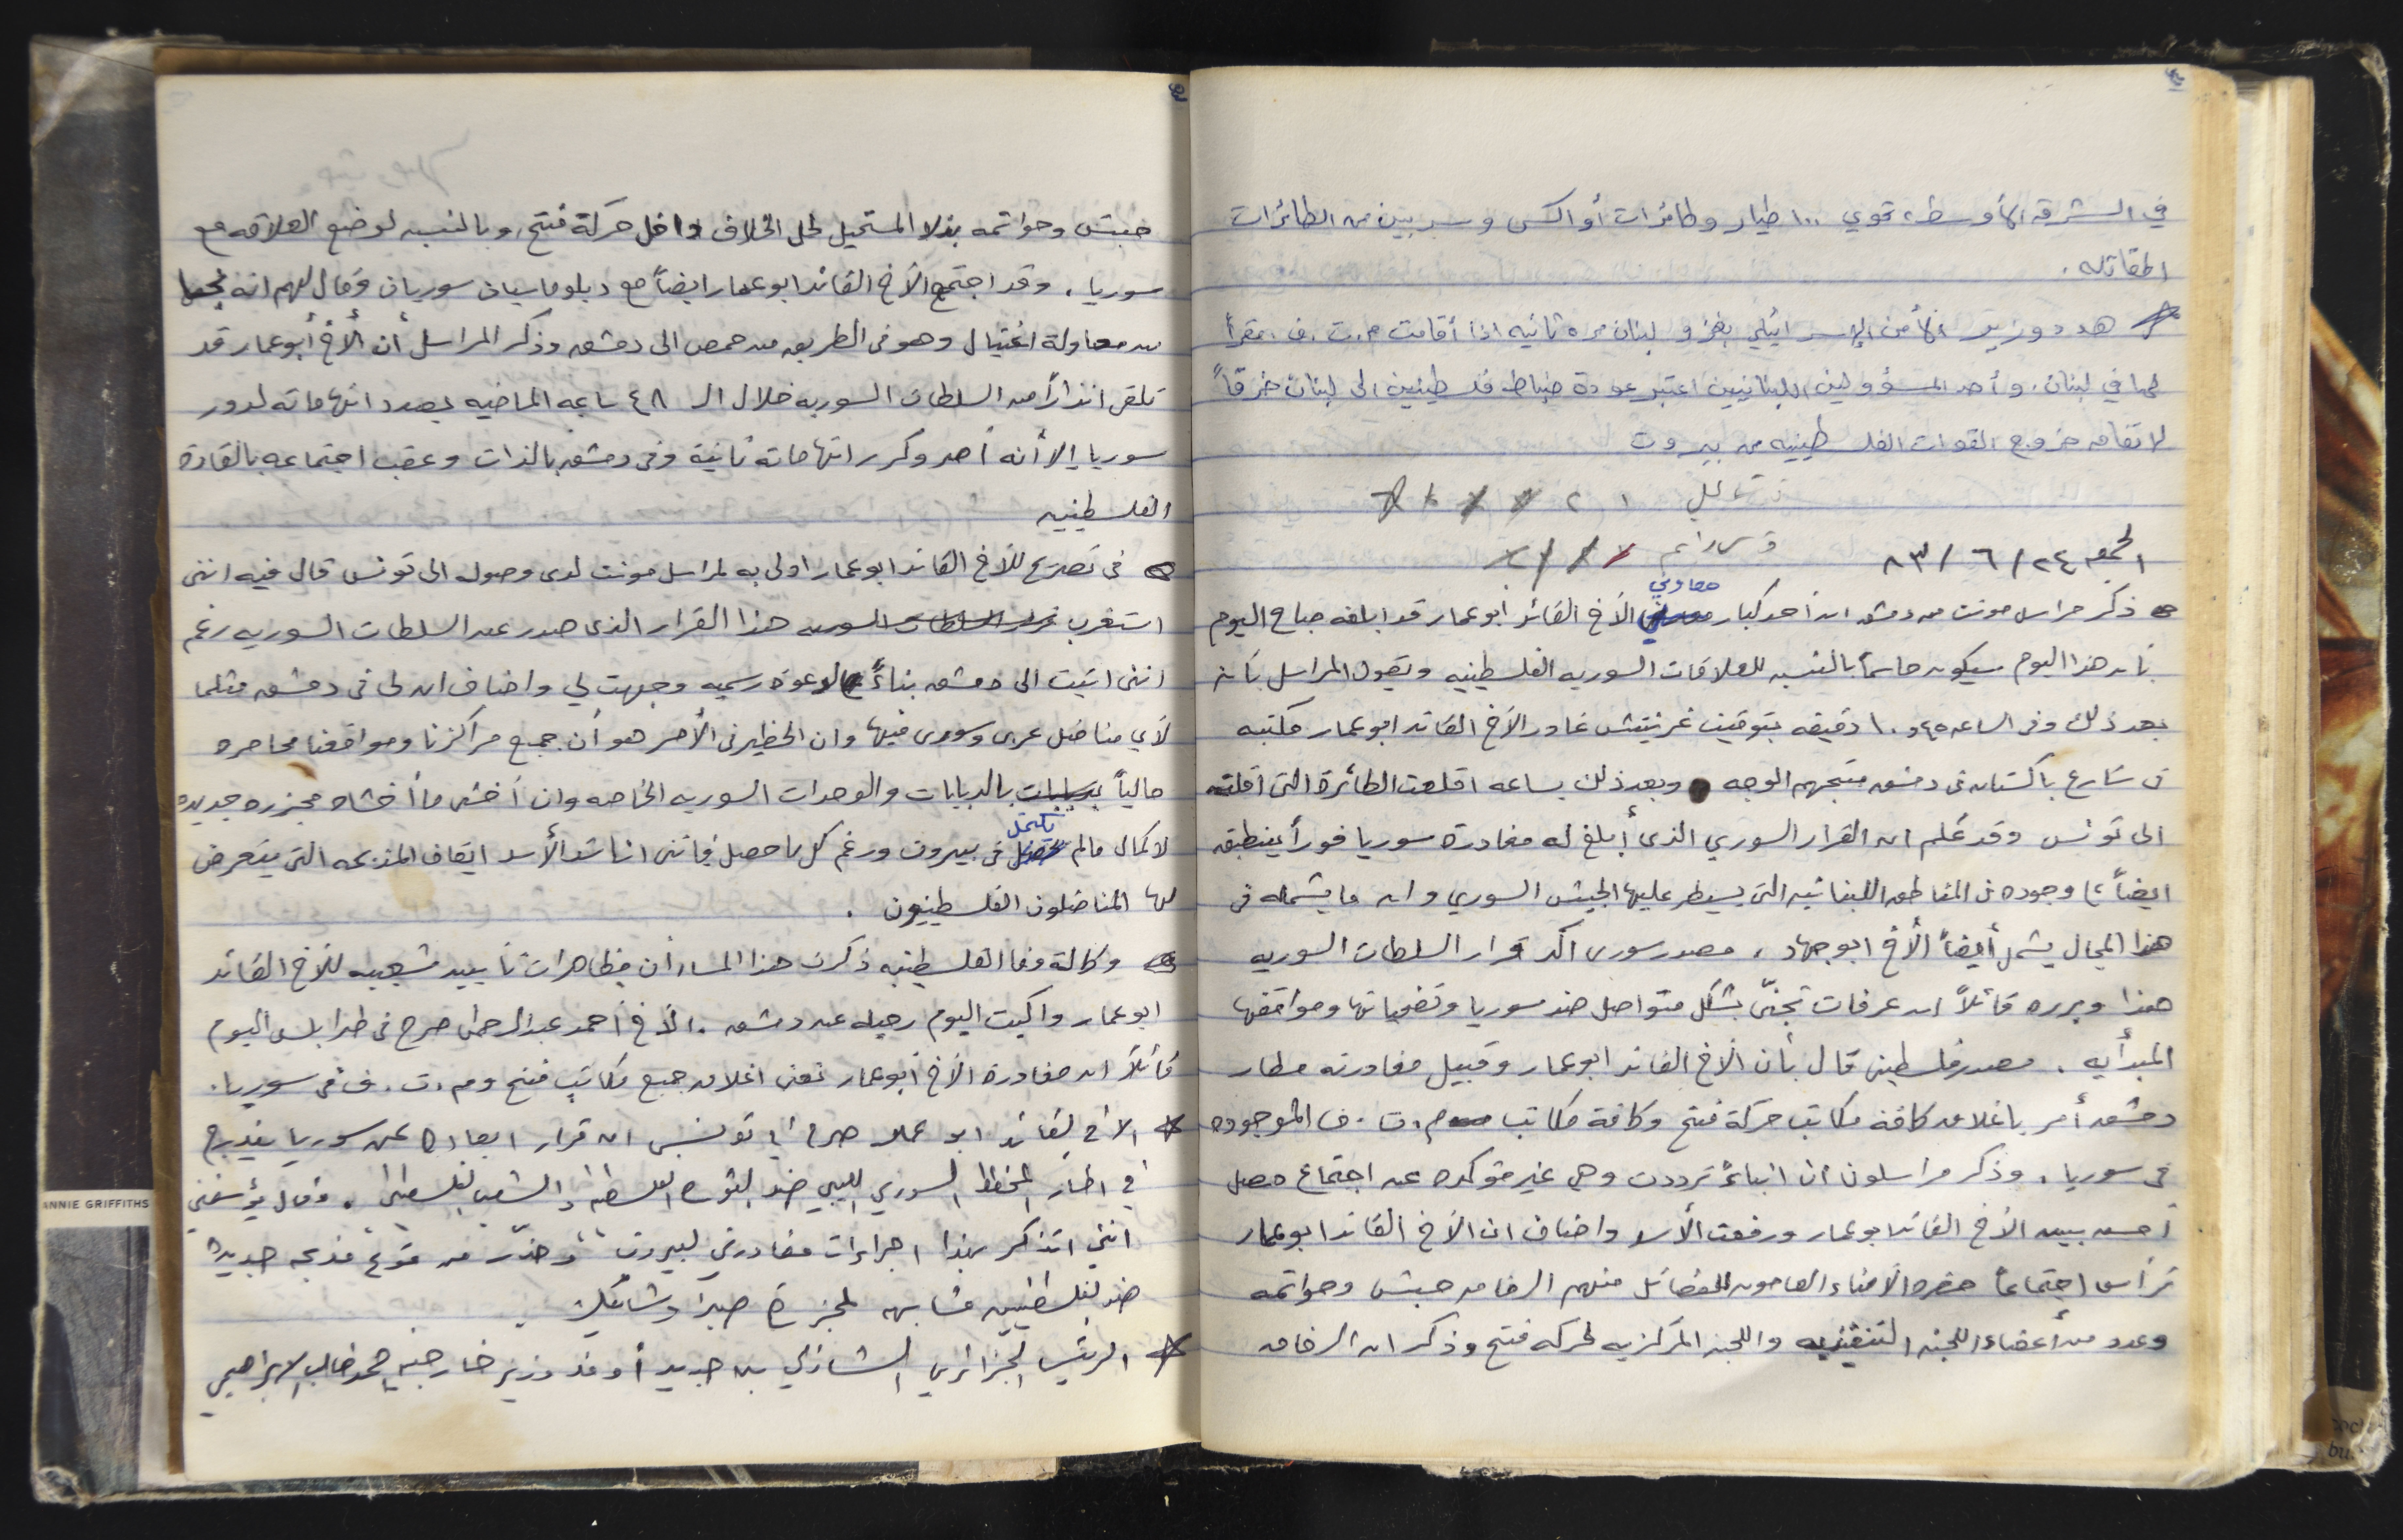 في الشرق الأوسط، تحوي ١٠٠ طيار وطائرات أواكس وسربين من الطائرات
المقاتله .
هدد وزير الأمن الإسرائيلي بغزو لبنان مره ثانيه اذا أقامت م.ت.ف. مقراً
لها في لبنان. وأحد المسؤولين اللبنانيين اعتبر عودة ضباط فلسطينين الى لبنان خرقاً
لاتفاق خروج القوات الفلسطينيه من بيروت
١ ٢
الجمعه ٢٤ / ٦ / ٨٣
معاوني
ذكر مراسل مونت من دمشق ان أحد كبار الأخ القائد أبو عمار قد ابلغه صباح اليوم
بأن هذا اليوم سيكون حاسماً بالنسبه للعلاقات السوريه الفلسطينيه ويقول المراسل بأنه
بعد ذلك وفى الساعه و١٠ دقيقه بتوقيت غرينتش غادر الأخ القائد ابو عمار مكتبه
فى شارع باكستان فى دمشق متجهم الوجه وبعد ذلك بساعه اقلعت الطائرة التى اقلته
الى تونس وقد عُلم ان القرار السوري الذى أُبلغ له مغادرة سوريا فوراً ينطبق
ايضاً على وجوده فى المناطق اللبنانيه التى يسيطر عليها الجيش السوري وان ما يشمله فى
هذا المجال يشمل أيضاً الأخ ابو جهاد ، مصدر سورى اكد قرار السلطات السوريه
هذا وبرره قائلاً ان عرفات تجنّى بشكل متواصل ضد سوريا وتضحياتها ومواقفها
المبدأيه . مصدر فلسطينى قال بأن الأخ القائد ابو عمار وقبيل مغادرته مطار
دمشق أمر باغلاق كافة مكاتب حركة فتح وكافة مكاتب م.ت.ف الموجوده
فى سوريا . وذكر مراسلون أن انباءً ترددت وهي غير مؤكده عن اجتماع حصل
أمس بين الأخ القائد ابو عمار ورفعت الأسد واضاف ان الأخ القائد ابو عمار
ترأس اجتماعاً حضره الأمناء العامون للفصائل منهم الرفاق حبش وحواتمه
وعدد من أعضاء اللجنه التنفيذيه واللجنه المركزيه لحركه فتح وذكر ان الرفاق
حبش وحواتمه بذلا المستحيل لحل الخلاف داخل حركة فتح، وبالنسبه لوضع العلاقه مع
سوريا . وقد اجتمع الأخ القائد ابو عمار ايضاً مع دبلوماسيان سوريان وقال لهم انه نجا
من محاولة اغتيال وهو فى الطريق من حمص الى دمشق وذكر المراسل أن الأخ أبو عمار قد
تلقى انذاراً من السلطات السوريه خلال الـ ٤٨ ساعه الماضيه بصدد اتهاماته لدور
سوريا إلا أنه أصر وكرر اتهاماته ثانية وفى دمشق بالذات وعقب اجتماعه بالقادة
الفلسطينيه
فى تصريح للأخ القائد ابو عمار ادلى به لمراسل مونت لدى وصوله الى تونس قال فيه اننى
استغرب قرار السلطات السوريه هذا القرار الذى صدر عن السلطات السوريه رغم
اننى اتيت الى دمشق بناءً لدعوة رسميه وجهت لي واضاف ان لى فى دمشق مثلما
لأي مناضل عربى وسورى فيها وان الخطير فى الأمر هو أن جميع مراكزنا ومواقعنا محاصره
حالياً بالدبابات والوحدات السوريه الخاصه وان أخشى ما أخشاه مجزره جديده
يكتمل
لاكمال مالم فى بيروت ورغم كل ما حصل فإننى اناشد الأسد ايقاف المذبحه التى يتعرض
لها المناضلون الفلسطينيون .
وكالة وفا الفلسطينيه ذكرت هذا المساء أن مظاهرات تأييد شعبيه للأخ القائد
ابو عمار واكبت اليوم رحيله عن دمشق . الأخ أحمد عبد الرحمن صرح فى طرابلس اليوم
قائلاً ان مغادرة الأخ أبو عمار تعنى اغلاق جميع مكاتب فتح وم.ت.ف فى سوريا.
الأخ القائد ابو عمار صرح في تونس ان قرار ابعاده عن سوريا يندرج
في اطار المخطط السوري الليبي ضد الثوره الفلسطينيه والشعب الفلسطيني . وقال يؤسفني
انني اتذكر بهذا اجراءات مغادرتي لبيروت " وحذّر من وقوع مذبحه جديدة
ضد الفلسطينيين مشابهه لمجزرة صبرا وشاتيلا .
الرئيس الجزائري الشاذلي بن جديد أوفد وزير خارجيه احمد طالب الابراهيمي
ANNIE GRIFFITHS